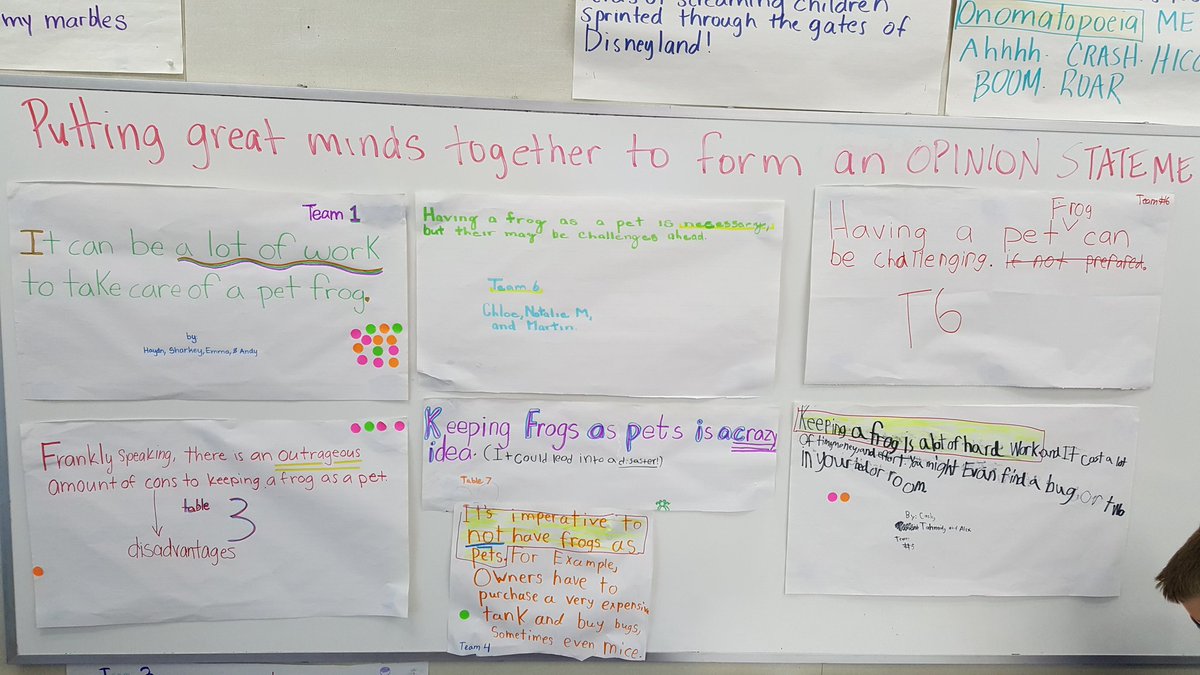 my marbles
screaming children
sprinted through the gates of
Disneyland!
Onomatopoeia ME
Ahhhh. CRASH. HICC
BOOM. ROAR
Putting great minds together to form an OPINION STATEME
Team 1
It can be a lot of work
to take care of a pet frog.
by:
Haydn, Sharkey, Emma, & Andy
Having a frog as a pet is necessary,
but their may be challenges ahead.
Team 6
Chloe, Natalie M,
and Martin.
Team #6
Frog
Having a pet can
be challenging. if not prepared.
T6
Frankly speaking, there is an outrageous
amount of cons to keeping a frog as a pet.
table 3
disadvantages
Keeping Frogs as pets is a crazy
idea. (It could lead into a disaster!)
Table 7
It's imperative to
not have frogs as
pets. For Example,
Owners have to
purchase a very expensive
tank and buy bugs,
Sometimes even mice.
Team 4
Keeping a frog is a lot of hard work and It cost a lot
Of time, money, and effort. You might Even find a bug or two
in your bed or room
By: Cash,
and Alix
Team
#5